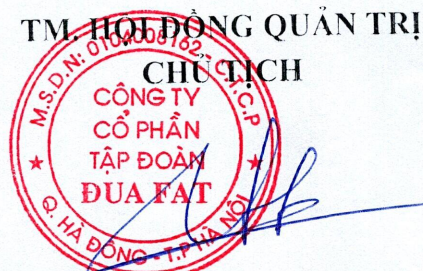 TM. HỘI ĐỒNG QUẢN TRỊ
CHỦ TỊCH
M.S.D.N: 0104008162-C.T.C.P
CÔNG TY
CỔ PHẦN
TẬP ĐOÀN
ĐUA FAT
Q. HÀ ĐÔNG - T.P HÀ NỘI